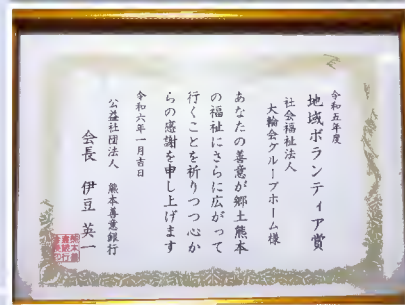 令和五年度
地域ボランティア賞
社会福祉法人
大輪会グループホーム様
あなたの善意が郷土熊本
の福祉にさらに広がって
行くことを祈りつつ心か
らの感謝を申し上げます
令和六年一月吉日
公益社団法人 熊本善意銀行
会長 伊豆英一